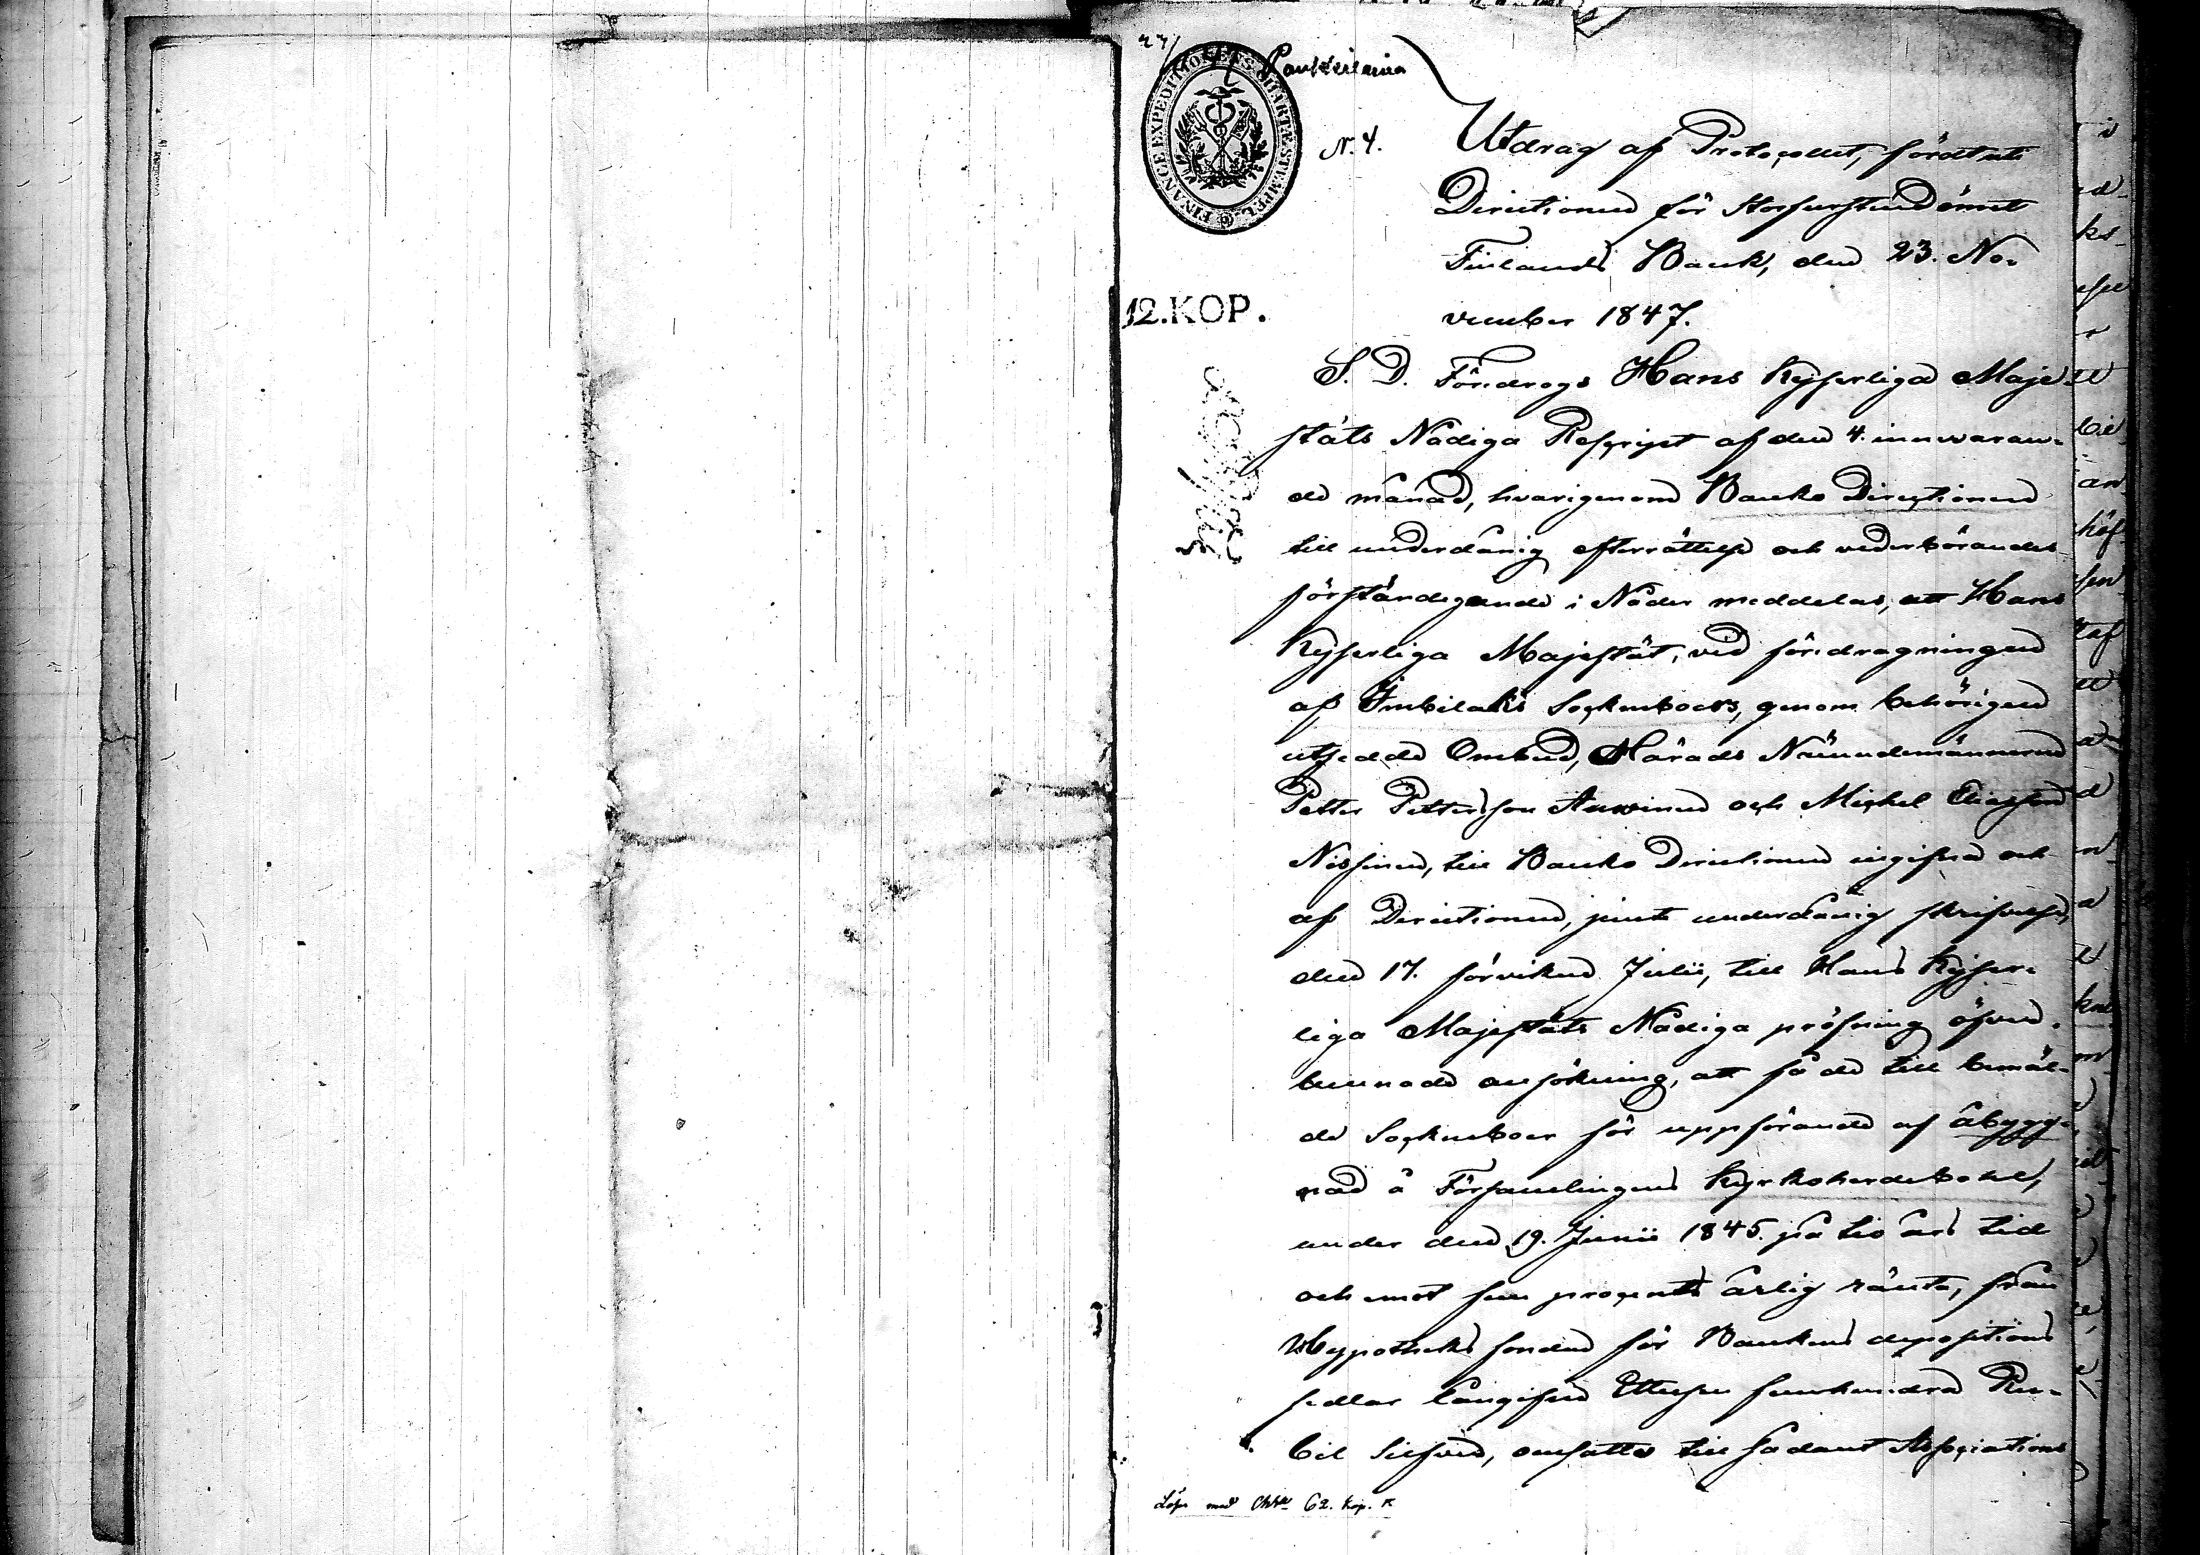 FINANCE EXPEDITIONENS CHARTÆ STEMPEL
12.KOP.
N. 4.
Utdrag af Protocollet, fördt uti
Directionen för Storfurstendömet
Finlands Bank, den 23. No-
vember 1847.
S. D. Föredrogs Hans Kejserliga Maje-
stäts Nådiga Rescript af den 4. innevaran-
de månad, hvarigenom Banko Directionen
till underdånig efterrättelse och vederbörandes
förständigande i Nåder meddelas, att Hans
Kejserliga Majestät, vid föredragningen
af Imbilaks Sockneboers, genom behörigen
utsedde Ombud, Härads Nämndemännerne
Petter Pettersson Auvinen och Michel Eliasson
Nissinen, till Banko Directionen ingifne och
af Directionen, jemte underdånig skrifvelse,
den 17. förvikne Julii, till Hans Kejser-
liga Majestäts Nådiga pröfning öfver-
lemnade ansökning, att få de till bemäl-
de Sockneboer för uppförande af åbygg-
nad å Församlingens Kyrkoherdebohl,
under den 19. Junii 1845. på tio års tid
och emot fem procents årlig ränta, från
Hypotheks fonden för Bankens depositions
sedlar långifne Ettusen femhundra Ru-
bel Silfver, omsatte till sådant Associations
Löses med Chtæ 62. kop.